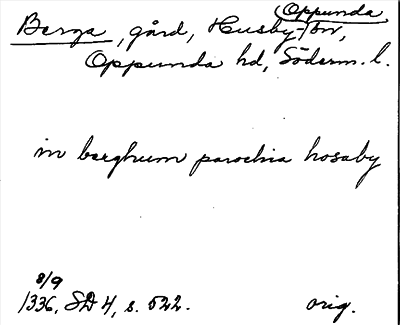 Oppunda
Berga, gård, Husby- sn,
Oppunda hd, Söderm. l.
in berghum parochia hosaby
8/9
1336, SD 4, s. 522.  orig.